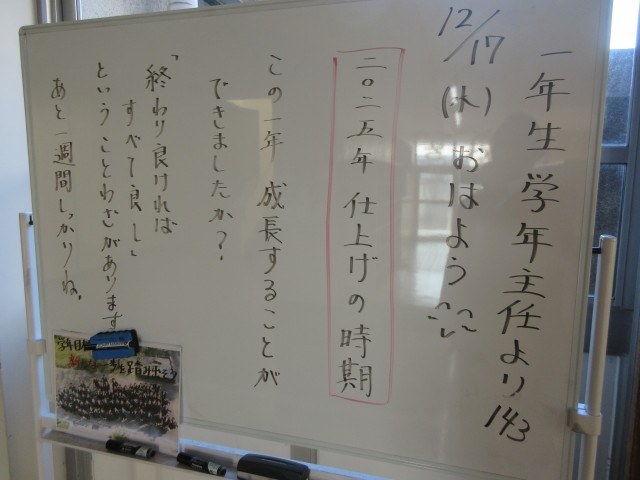 一年生 学年主任より 143
12/17(水) おはよう
二〇二五年 仕上げの時期
この一年 成長することが
できましたか?
「終わり良ければ
すべて良し」
ということわざがあります
あと一週間しっかりね。